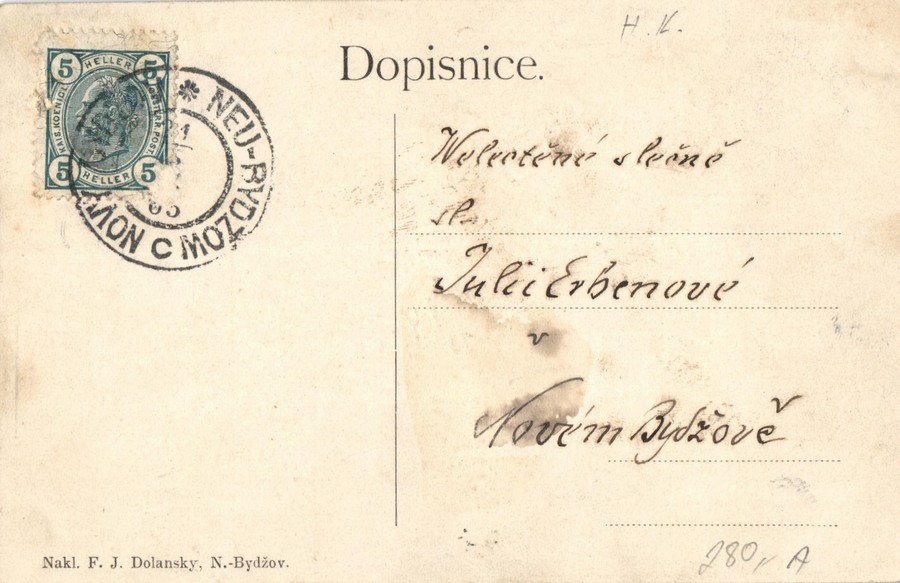 H. K.
Dopisnice.
5 HELLER 5
KAIS. KOENIGL. OESTERR. POST.
5 HELLER 5
NEU-BYDZOW C NOVÝ
Velectěné slečně
sl.
Julii Erbenové
v
Novém Bydžově
Nakl. F. J. Dolansky, N.-Bydžov.
280,- A